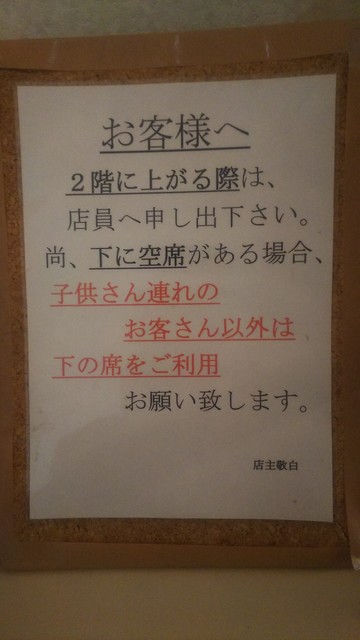 お客様へ
2階に上がる際は、
店員へ申し出下さい。
尚、下に空席がある場合、
子供さん連れの
お客さん以外は
下の席をご利用
お願い致します。
店主敬白